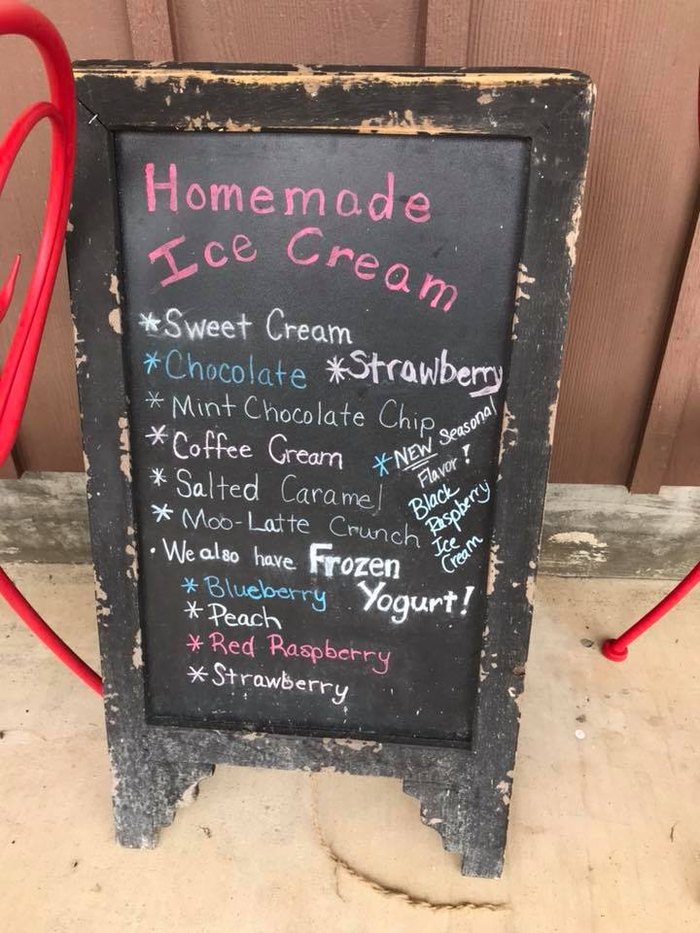 Homemade
Ice Cream
*Sweet Cream
*Chocolate *Strawberry
*Mint Chocolate Chip
*Coffee Cream
*Salted Caramel
*Moo-Latte Crunch
*NEW Seasonal
Flavor!
Black
Raspberry
Ice
Cream
•We also have Frozen
Yogurt!
*Blueberry
*Peach
*Red Raspberry
*Strawberry